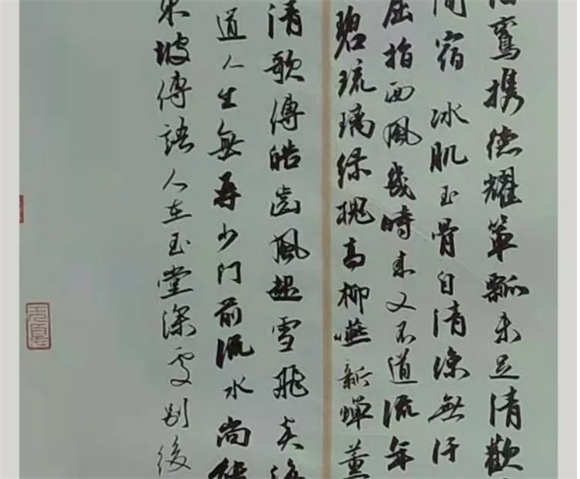 鸞携德耀箪瓢未足清歡
間宿 冰肌玉骨自清涼無汗
屈指西風幾時來又不道流年
碧琉璃緑槐高柳嚥新蟬薰
清歌傳皓齒風起雪飛炎海
道人生無再少门前流水尚能
東坡傳語人在玉堂深處別後